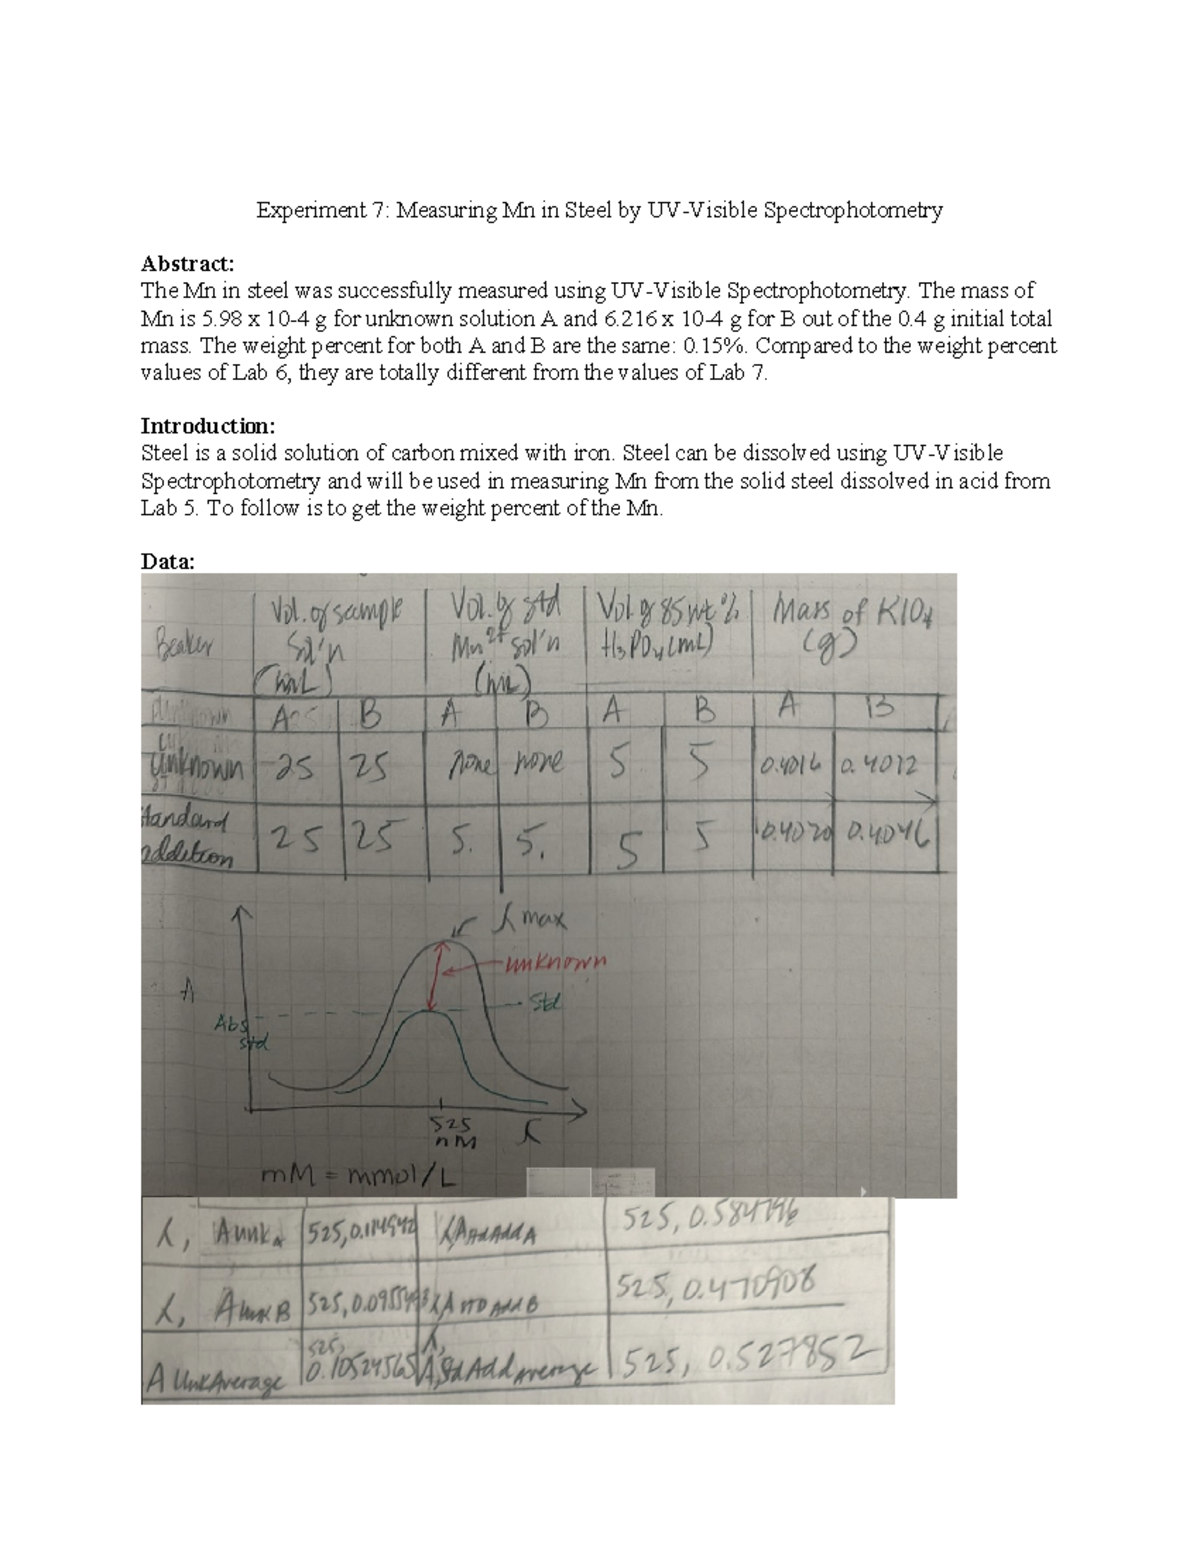 Experiment 7: Measuring Mn in Steel by UV-Visible Spectrophotometry
Abstract:
The Mn in steel was successfully measured using UV-Visible Spectrophotometry. The mass of
Mn is 5.98 x 10-4 g for unknown solution A and 6.216 x 10-4 g for B out of the 0.4 g initial total
mass. The weight percent for both A and B are the same: 0.15%. Compared to the weight percent
values of Lab 6, they are totally different from the values of Lab 7.
Introduction:
Steel is a solid solution of carbon mixed with iron. Steel can be dissolved using UV-Visible
Spectrophotometry and will be used in measuring Mn from the solid steel dissolved in acid from
Lab 5. To follow is to get the weight percent of the Mn.
Data:
Beaker
Vol. of sample
Sol'n
(mL)
Vol. of std
Mn2+ sol'n
(mL)
Vol of 85 wt %
H3PO4 (mL)
Mass of KIO4
(g)
A B A B A B A B
Unknown 25 25 none none 5 5 0.4016 0.4012
Standard
addition 25 25 5. 5. 5 5 0.4020 0.4046
λ max
unknown
Std
A
Abs
std
525
nM
λ
mM = mmol/L
λ, Aunk A 525, λ, A 525,
λ, Aunk B 525, λ, A STD Add B 525, 0.470908
A Unk Average 525, 0.10524565 λ, A, Std Add Average 525, 0.527852